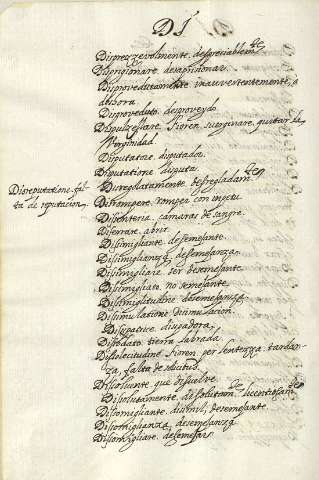 DI
Disprezzevolmente. despreciablem.te
Disprigionare. desaprisionar.
Disprovedutamente inauvertentemente, a
deshora.
Disproveduto desproveydo.
Dispulzellare. Fioren. suerginare, quitar la
Virginidad.
Disputatore disputador.
Disputatione disputa.
Disreputatione. fal
ta de reputacion,
Disregolatamente desregladam.te
Disrompere romper con impetu
Dissenteria. cámaras de sangre.
Disserrare. abrir.
Dissimigliante. desemejante.
Dissimiglianza. desemejanza.
Dissimigliare. ser desemejante.
Dissimigliato. no semejante.
Dissimiglitudine desemejanza.
Dissimulatione disimulacion.
Dissipatrice. disipadora,
Dissodato. tierra labrada
Dissolecitudine Fioren. per lentezza. tardan
za, falta de solicitud.
Dissoluente. que desuelve
Dissolutamente. de solutam.te licentiosam.te
Dissomigliante. disimil, desemejante.
Dissomiglianza, desemejanza
Dissomigliare. desemejar.